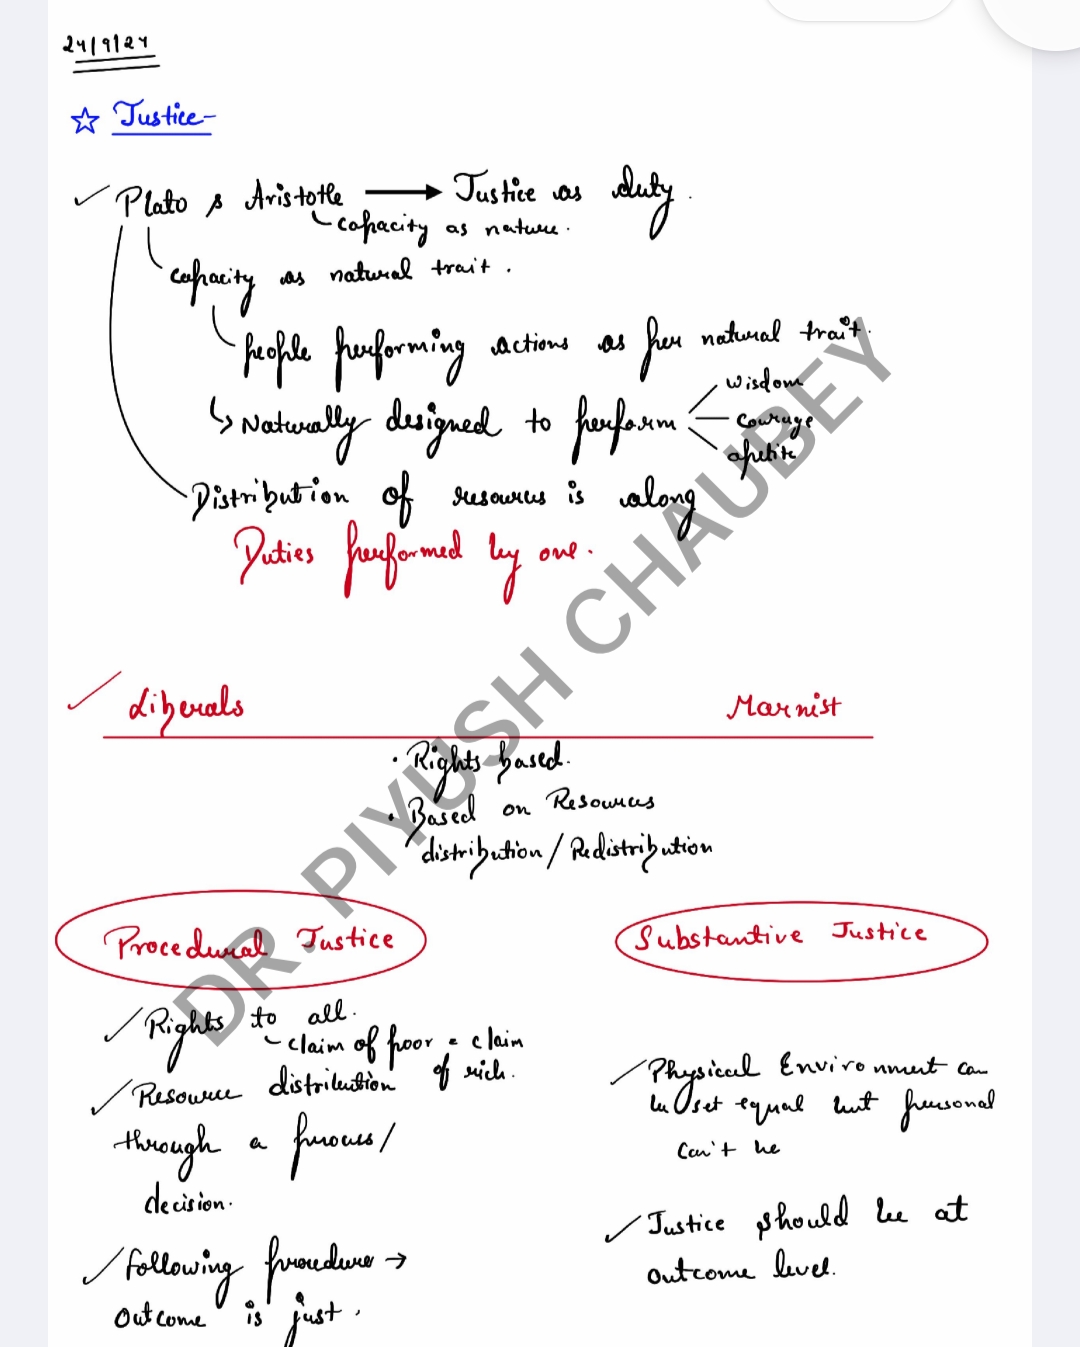 24/9/24
☆ Justice-
✓ Plato & Aristotle → Justice as duty.
capacity as nature.
capacity as natural trait.
people performing actions as per natural trait.
↳ Naturally designed to perform
wisdom
courage
apetite
Distribution of resources is along
Duties performed by one.
✓ Liberals Marxist
• Rights based.
• Based on Resources
distribution / Redistribution
Procedural Justice Substantive Justice
✓ Rights to all.
claim of poor = claim
of rich.
✓ Resource distribution
through a process/
decision.
✓ following procedure →
outcome is just.
✓ Physical Environment can
be set equal but personal
can't be
✓ Justice should be at
outcome level.
DR. PIYUSH CHAUBEY